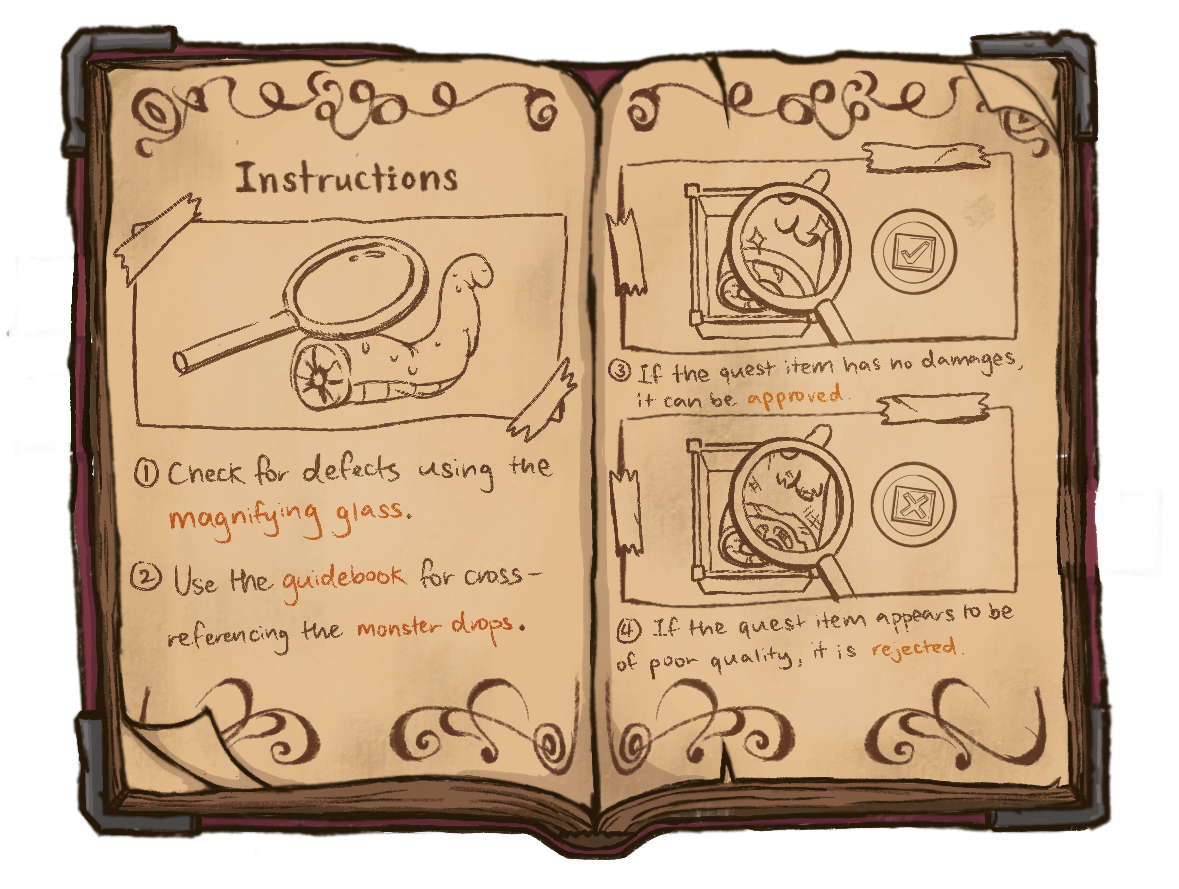 Instructions
① Check for defects using the
magnifying glass.
② Use the guidebook for cross-
referencing the monster drops.
③ If the quest item has no damages,
it can be approved.
④ If the quest item appears to be
of poor quality, it is rejected.